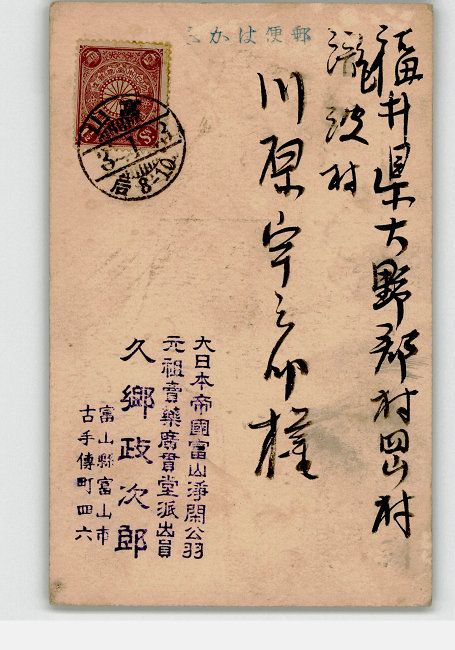 郵便はかき
福井県大野郡村岡村
瀧波村
川原宇之卯様
大日本帝國富山淨閑公羽
元祖賣藥廣貫堂派出員
久鄉政次郎
富山縣富山市
古手傳町四六
富山
3-1-3
后8-10